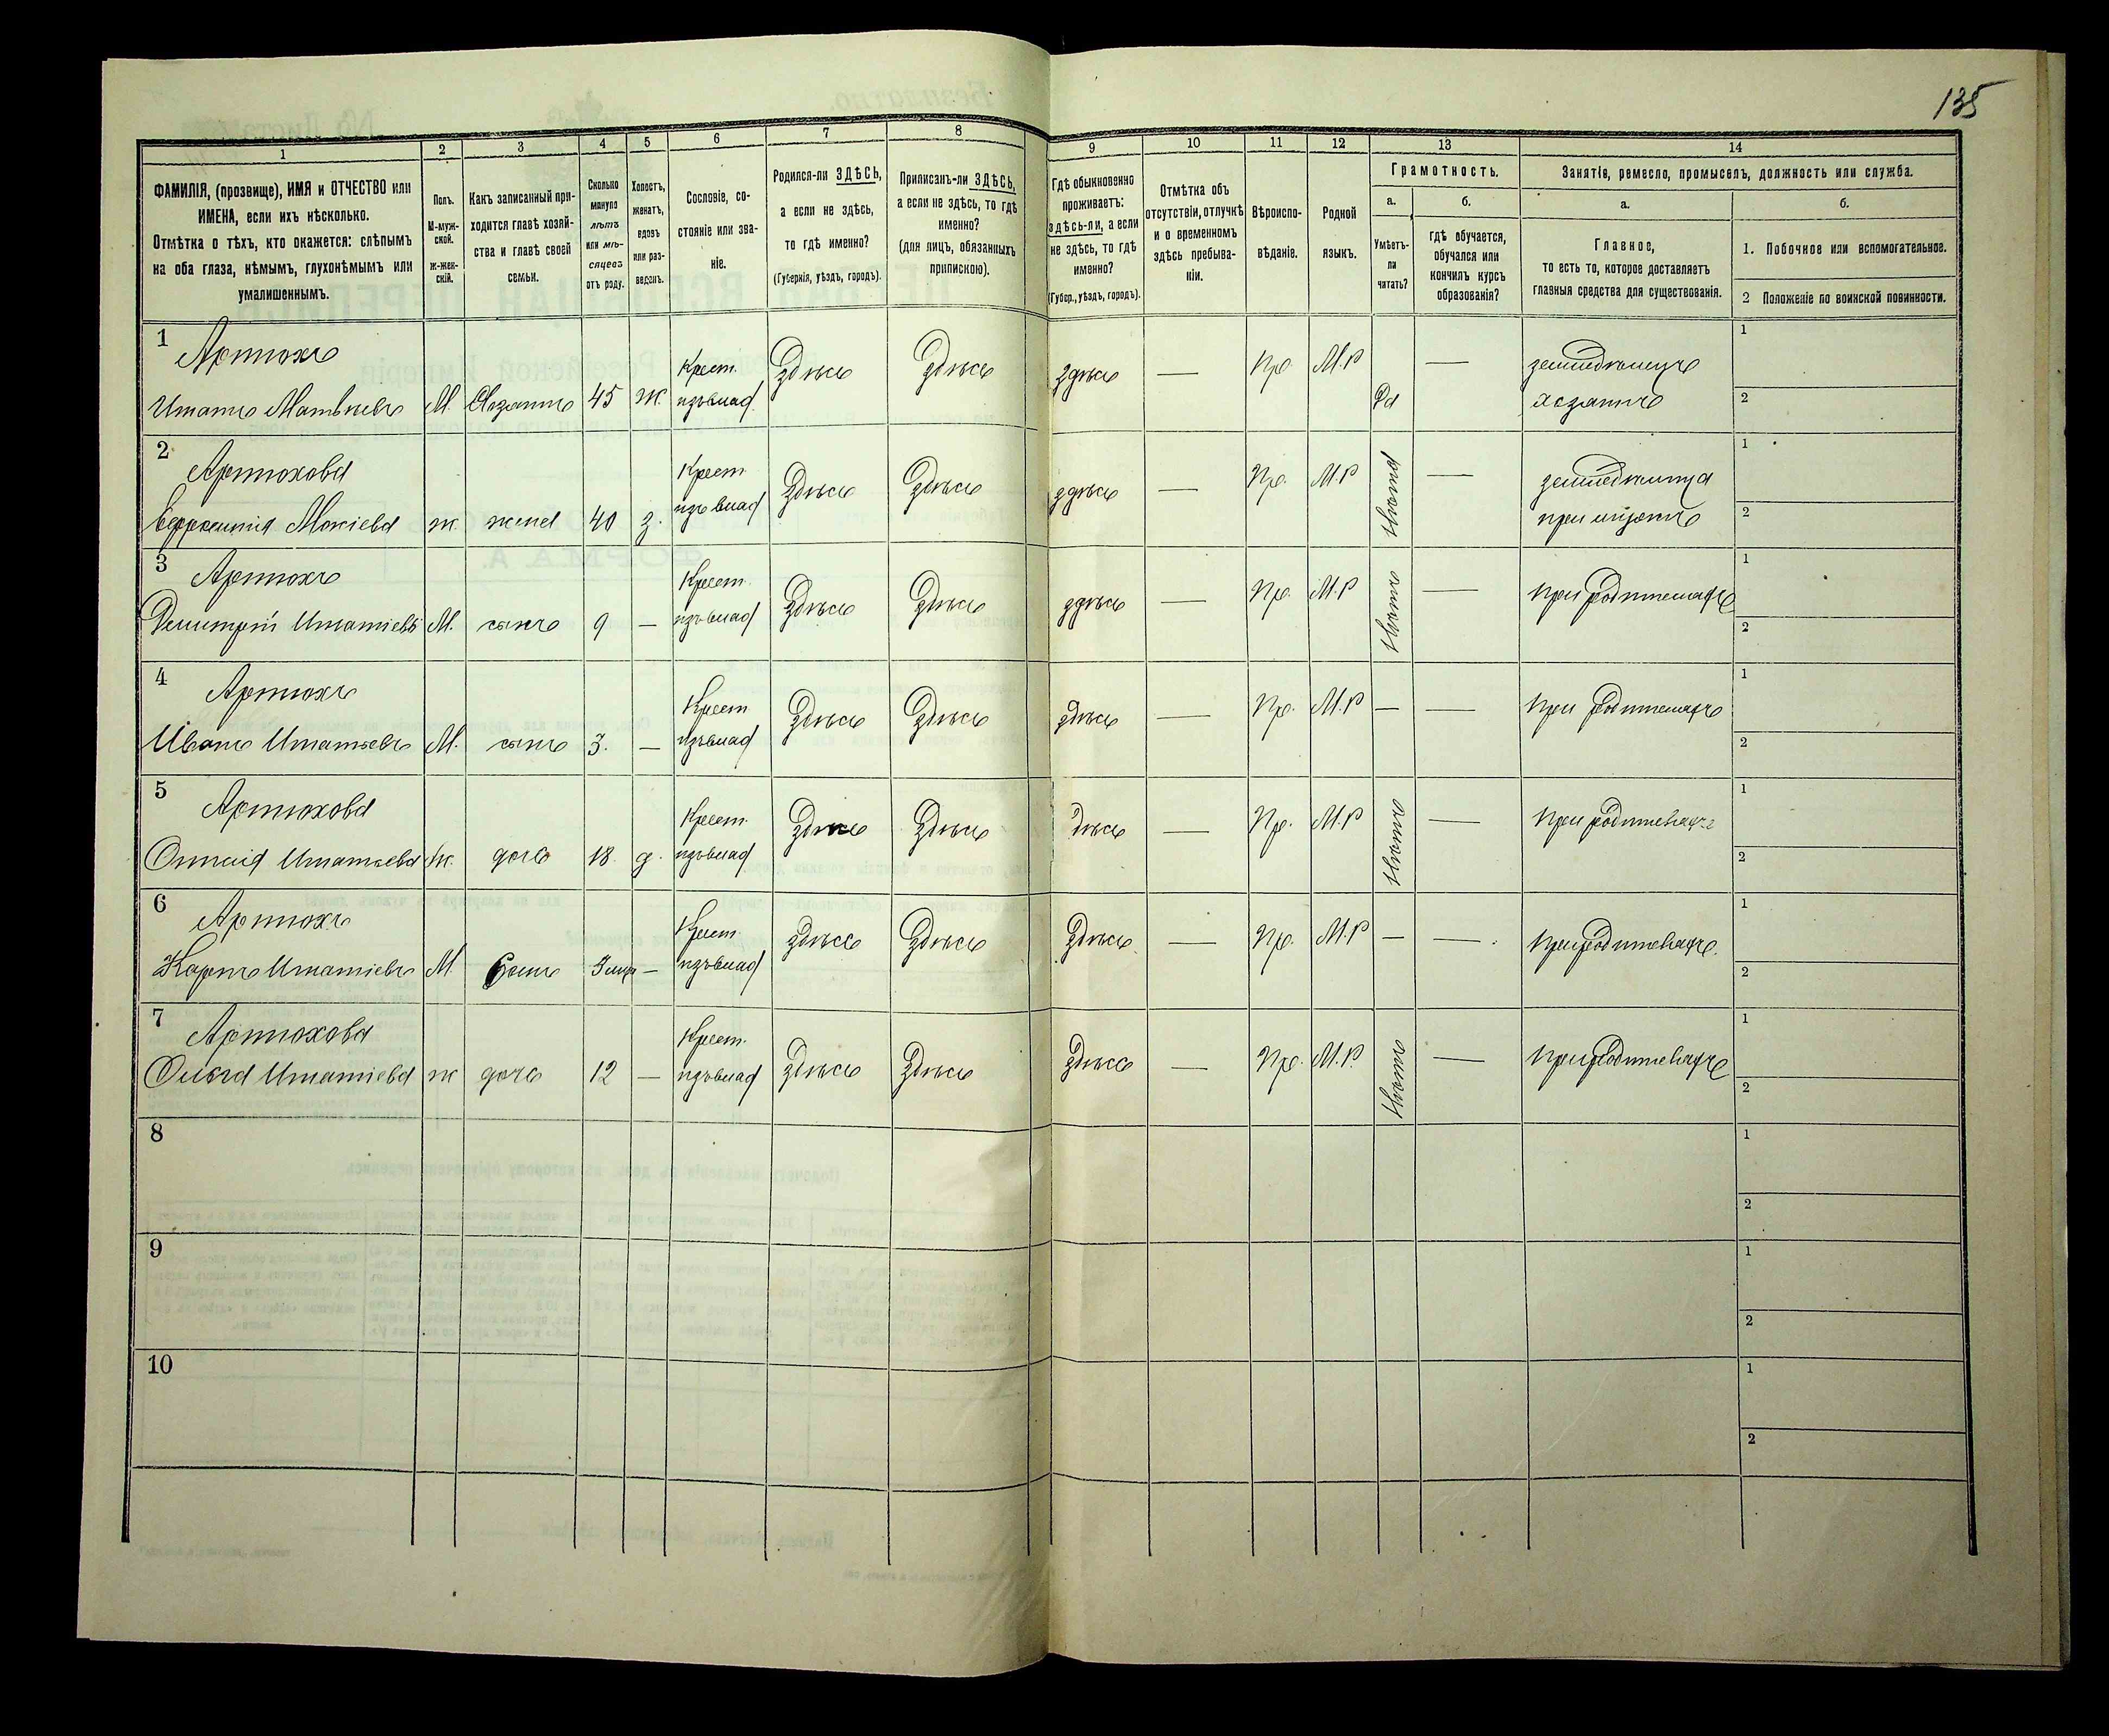 135
1
2
3
4
5
6
7
8
9
10
11
12
13
14
ФАМИЛІЯ, (прозвище), ИМЯ и ОТЧЕСТВО или
ИМЕНА, если ихъ нѣсколько.
Отмѣтка о тѣхъ, кто окажется: слѣпымъ
на оба глаза, нѣмымъ, глухонѣмымъ или
умалишеннымъ.
Полъ.
М-муж-
ской.
ж-жен-
скій.
Какъ записанный при-
ходится главѣ хозяй-
ства и главѣ своей
семьи.
Сколько
минуло
лѣтъ
или мѣ-
сяцевъ
отъ роду.
Холостъ,
женатъ,
вдовъ
или раз-
веденъ.
Сословіе, со-
стояніе или зва-
ніе.
Родился-ли ЗДѢСЬ,
а если не здѣсь,
то гдѣ именно?
(Губернія, уѣздъ, городъ).
Приписанъ-ли ЗДѢСЬ,
а если не здѣсь, то гдѣ
именно?
(для лицъ, обязанныхъ
припискою).
Гдѣ обыкновенно
проживаетъ:
здѣсь-ли, а если
не здѣсь, то гдѣ
именно?
(Губер., уѣздъ, городъ).
Отмѣтка объ
отсутствіи, отлучкѣ
и о временномъ
здѣсь пребыва-
ніи.
Вѣроиспо-
вѣданіе.
Родной
языкъ.
Грамотность.
а.
Умѣетъ-
ли
читать?
б.
гдѣ обучается,
обучался или
кончилъ курсъ
образованія?
Занятіе, ремесло, промыселъ, должность или служба.
а.
Главное,
то есть то, которое доставляетъ
главныя средства для существованія.
б.
1. Побочное или вспомогательное.
2 Положеніе по воинской повинности.
1 Артюхъ Крест. Здѣсь Здѣсь здѣсь — Пр. М.Р — земледѣлецъ 1
М. 45 ж. изъ влад. Да хозяинъ 2
2 Артюхова Крест. Здѣсь Здѣсь здѣсь — Пр. М.Р нѣтъ — 1
Мокіева ж. жена 40 з. изъ влад 2
3 Артюхъ Крест. Здѣсь Здѣсь здѣсь — Пр. М.Р нѣтъ — при родителяхъ 1
Дмитрій М. сынъ 9 — изъ влад 2
4 Артюхъ Крест Здѣсь Здѣсь здѣсь — Пр. М.Р — — при родителяхъ 1
Иванъ М. сынъ 3. — изъ влад 2
5 Артюхова Крест. Здѣсь Здѣсь здѣсь — Пр. М.Р нѣтъ — при родителяхъ 1
ж. дочь 18 д. изъ влад 2
6 Артюхъ Крест. Здѣсь Здѣсь Здѣсь — Пр. М.Р — — при родителяхъ. 1
Карпъ М. сынъ — изъ влад 2
7 Артюхова Крест. Здѣсь Здѣсь Здѣсь — Пр. М.Р. нѣтъ — при родителяхъ 1
Ольга ж дочь 12 — изъ влад 2
8 1
2
9 1
2
10 1
2